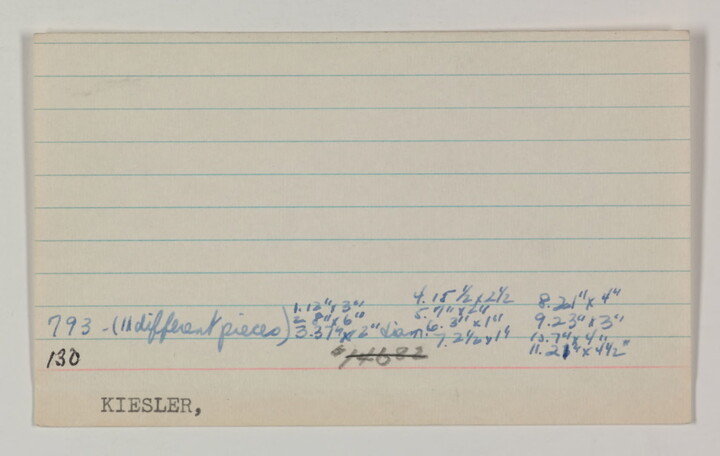 793 - (11 different pieces)
1. 12" x 3"
2. 8" x 6"
3. 31" x 2" diam.
4. 15 1/2 x 2 1/2
5. 7" x 2"
6. 3" x 1"
7. 2 1/2 x 1"
8. 21" x 4"
9. 23" x 3"
10. 7" x 4"
11. 21" x 4 1/2"
130
KIESLER,